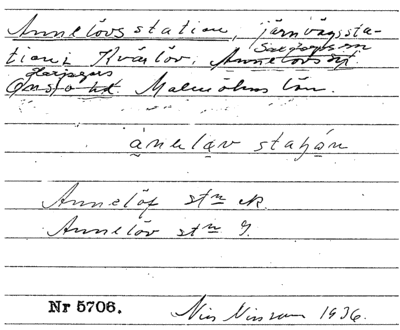 Annelövs station, järnvägssta-
tion, Kvärlöv, Annelövs
Harjagers
Onsjö hd. Malmöhus län.
ànelǫv staʃǫn
Annelöf stn ek.
Annelöv stn J.
Nr 5706. Nils Nilsson 1936.